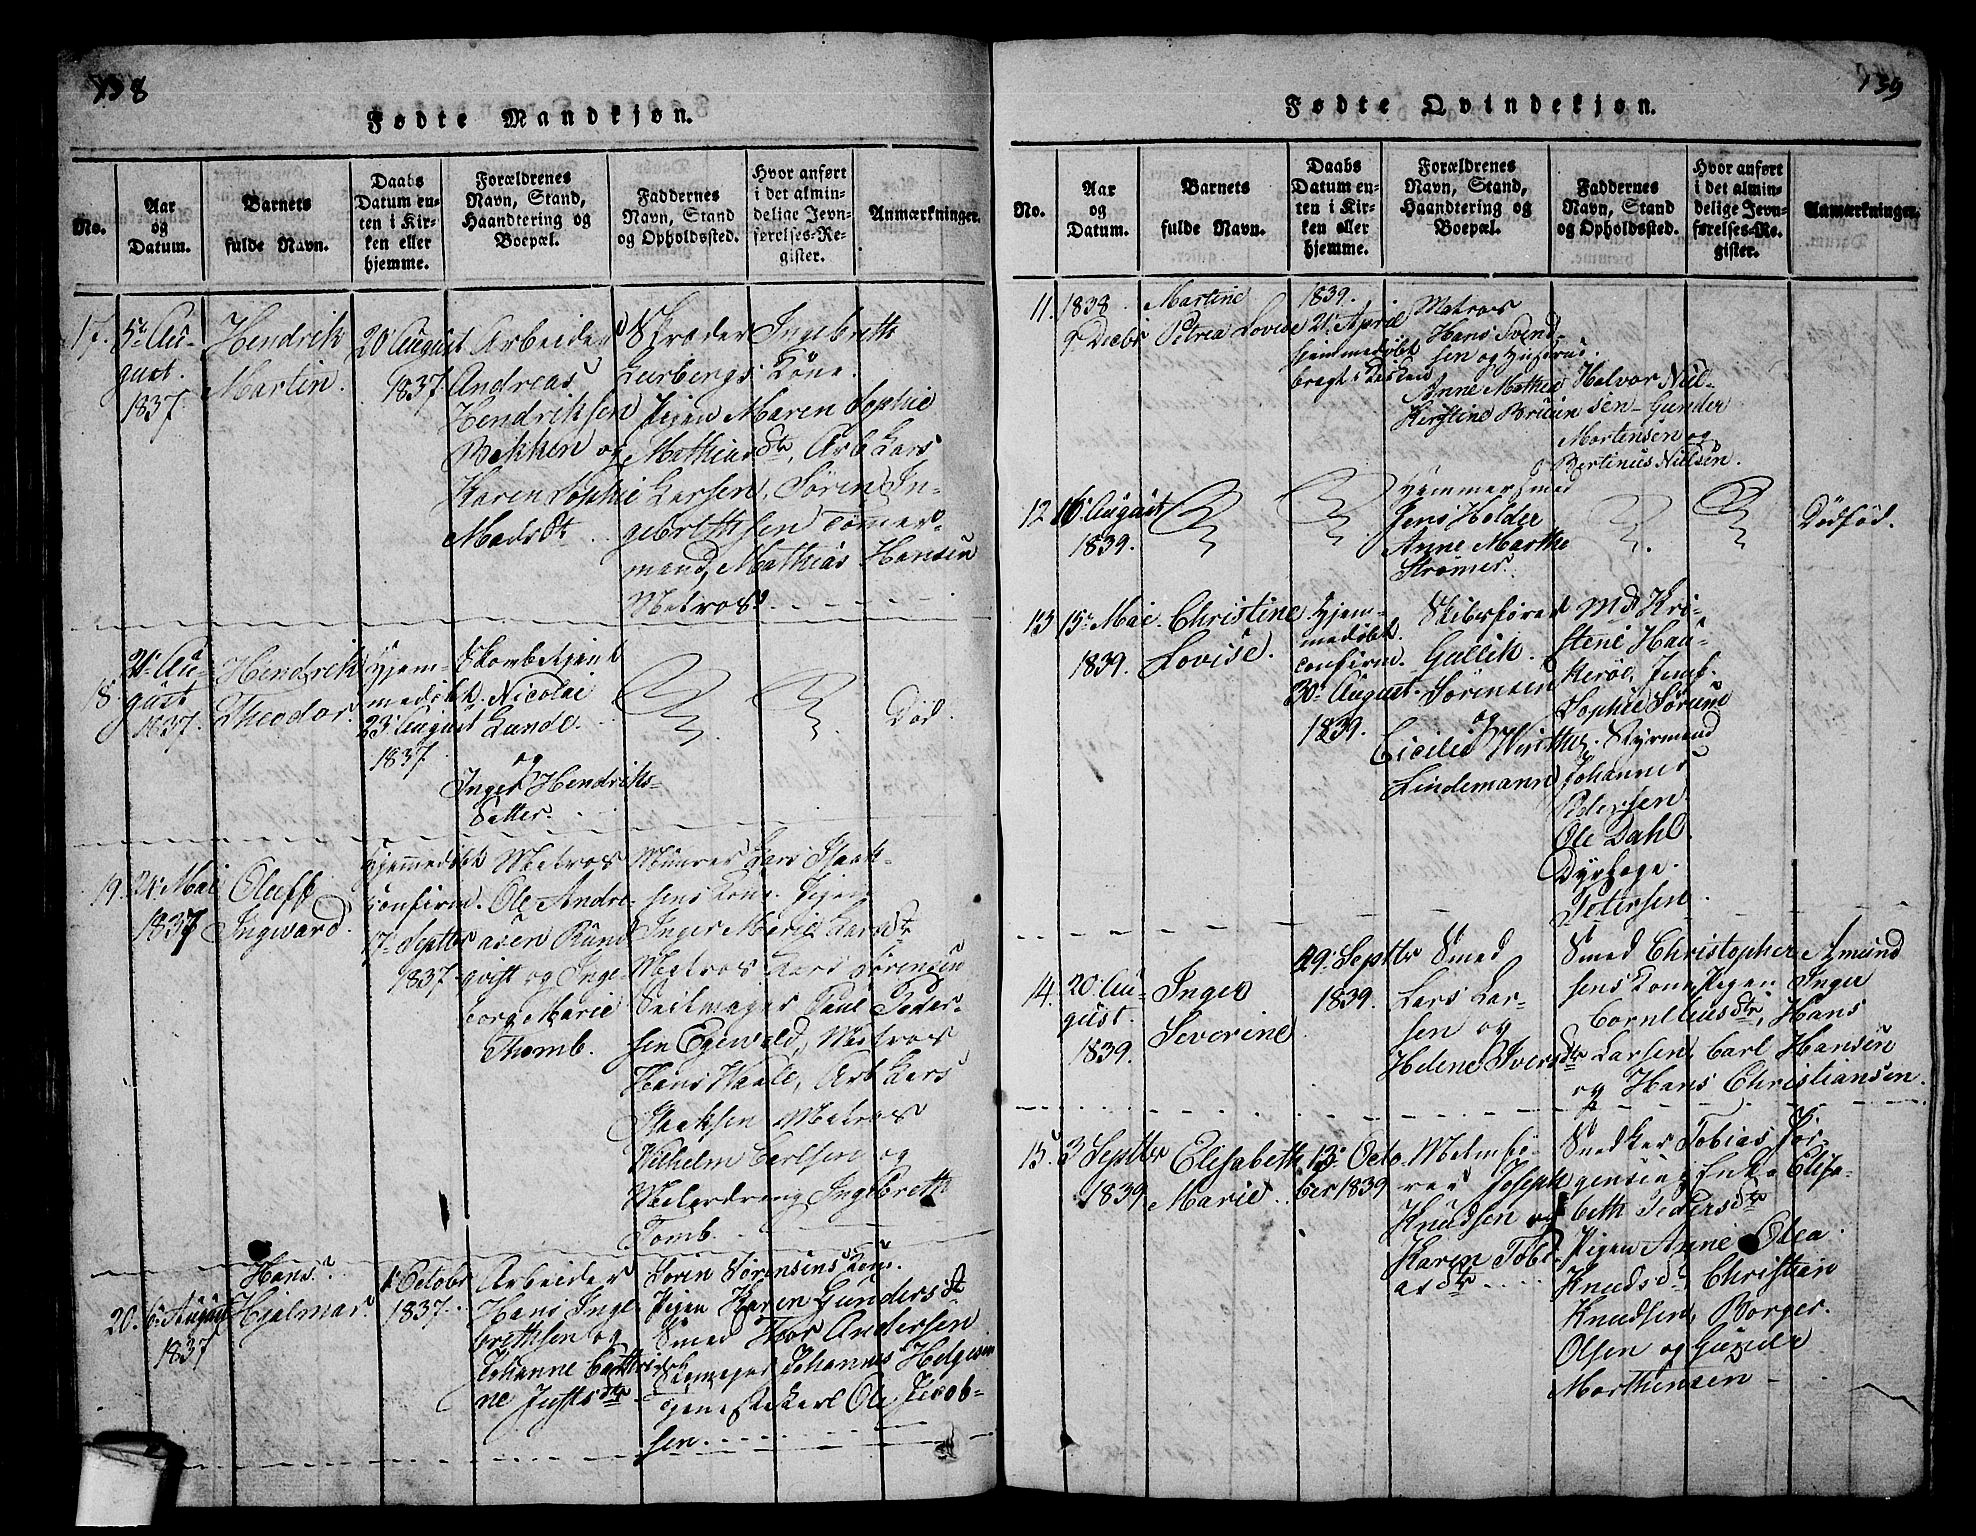 138
Fødte Mandkjøn.
No.
Aar
og
Datum.
Barnets
fulde Navn.
Daabs
Datum en-
ten i Kir-
ken eller
hjemme.
Forældrenes
Navn, Stand,
Haandtering og
Boepæl.
Faddernes
Navn, Stand
og Opholdssted.
Hvor anført
i det almin-
delige Jevn-
førelses-Re-
gister.
Anmærkninger.
17.
5te Au-
gust.
1837.
Hendrik
Martin.
20 August
1837
Arbeider
Andreas
Hendriksen
Bekken og
Karen Sophie
Madsdtr
Skræder Ingebreth
Lurbergs Kone.
Pigen Maren Sophie
Mathiasdtr, Arb Lars
Larsen, Søren In-
gebrethsen Tømer-
mand, Mathias Hansen
Matros
18
21 Au-
gust
1837.
Hendrik
Theodor.
Hjem-
medøbt
23 August
1837
Nicolai
Lunde.
og
Inger Hendriks-
Datter.
Død.
19.
21 Mai
1837
Oluff
Ingvard.
Hjemmedøbt
confirm.
17 Septbr
1837
Matros
Ole Andre-
asen Rund
qvist og Inge-
borg Marie
Thomb.
Murer Lars Isaak-
sens Kone. Pigen
Inger Marie Larsdtr
Matros Lars Jørensen
Seilmager Paul Peder-
sen Egewald, Matros
Hans Waale, Arb Lars
Isacksen Matros
Wilhelm Carlsen og
Malerdreng Ingebreth
Tomb.
20.
6 August
1837
Hans
Hjalmar.
1 Octobr
1837.
Arbeider
Hans Inge
brethsen og
Johanne Cathri-
ne Justsdtr
Søren Sørensens Kone.
Pigen Karen Gundersdt
Smed Thor Andersen
Johannes Helgesen
Ole Jacob-
sen.
139
Fødte Qvindekjøn.
No.
Aar
og
Datum.
Barnets
fulde Navn.
Daabs
Datum en-
ten i Kir-
ken eller
hjemme.
Forældrenes
Navn, Stand,
Haandtering og
Boepæl.
Faddernes
Navn, Stand
og Opholdssted.
Hvor anført
i det almin-
delige Jevn-
førelses-Re-
gister.
Anmærkninger.
11.
1838.
9 Decbr
Martine
Petrea Lovise
1839.
21 April
hjemmedøbt
bragt i Kirken
Matros
Hans Svend
sen og Hustrue
Anne Mathea
Kirstine Bruun
Halvor Niel-
sen - Gunder
Mortensen og
Bertinus Nielsen.
12
16 August
1839.
Hammersmed
Jens Holder
Anne Marthe
Strømer.
Dødfød.
13
15 Mai
1839.
Christine
Lovise.
Hjem-
medøbt.
confirm.
30 August
1839.
Skibsfører
Gullik
Sørensen
og
Cicilia
Lindemann
Md Kri-
stene Hau-
kerøe, Jomf.
Sophie Sørum
Styrmand
Johannes
Petersen
Ole Dahl
Dyrhoge
Petersen.
14.
20 Au-
gust.
1839.
Inger
Severine
29 Septbr
1839.
Smed
Lars Lar-
sen og
Helene Iversdtr
Smed Christopher Amund
sens Kone Pigen Inger
Cornelliusdtr, Hans
Larsen, Carl Hansen
og Hans Christiansen.
15.
3 Septbr
1839
Elisabeth
Marie.
13 Octo
ber 1839
Joseph
Knudsen og
Karen Tobi
asdtr
Snedker Tobias Jør-
gensens Enke Elisa-
beth Pedersdtr
Pigen Anne Olea
Knudsd. Christian
Knudsen, Borger.
Olsen og Gunder
Morthensen